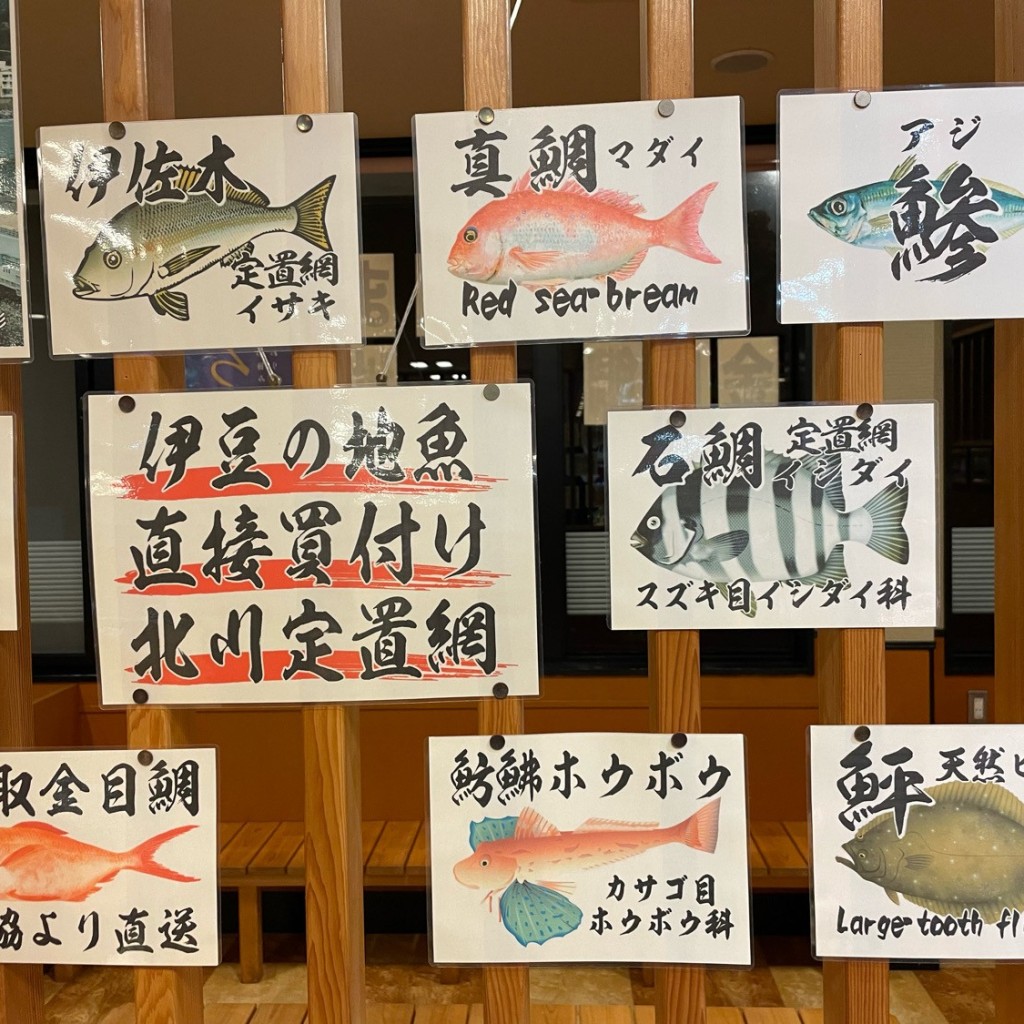 伊佐木
定置網
イサキ
真鯛 マダイ
Red sea bream
アジ
鰺
伊豆の地魚
直接買付け
北川定置網
石鯛 定置網
イシダイ
スズキ目イシダイ科
取金目鯛
協より直送
魴鮄ホウボウ
カサゴ目
ホウボウ科
鮃 天然ヒ
Large tooth fl